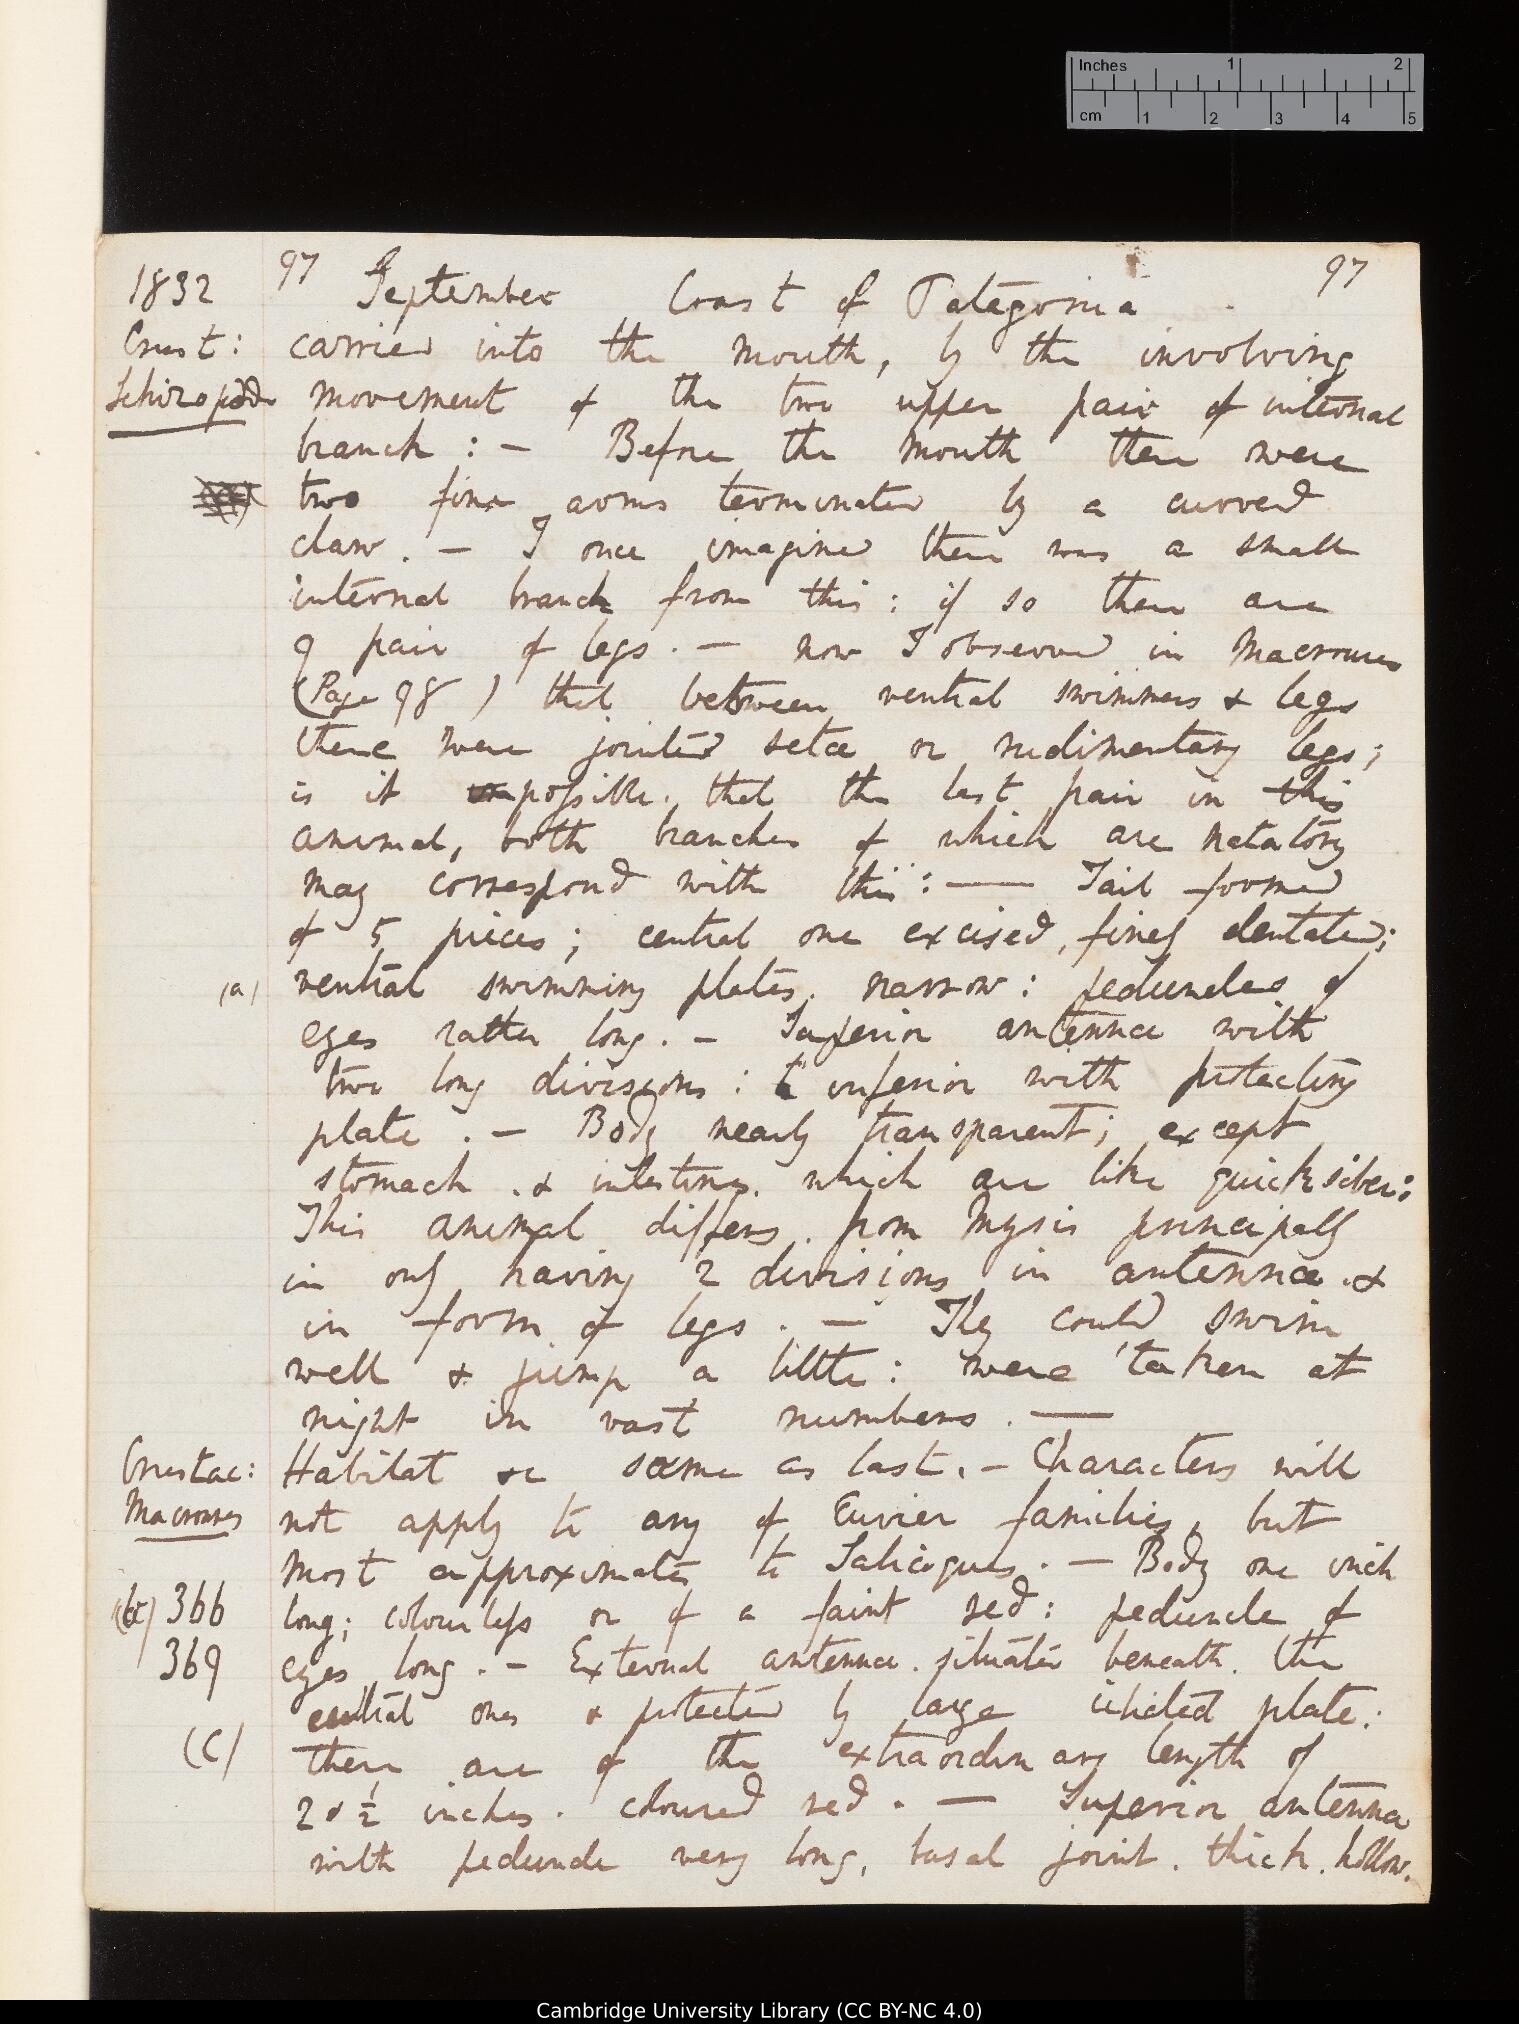 Inches 1 2
cm 1 2 3 4 5
97 97
1832 September Coast of Patagonia
Crust: carried into the mouth, by the involving
Schizopod movement of the two upper pair of internal
branch : — Before the mouth there were
two fine arms terminated by a curved
claw. — I once imagined there was a small
internal branch from this: if so there are
9 pair of legs. — now I observed in Macroures
(Page 98) that between ventral swimmers & legs
there were jointed setæ or rudimentary legs;
is it possible that the last pair in this
animal, both branches of which are natatory
may correspond with this: — Tail formed
of 5 pieces; central one excised, finely dentated;
(a) ventral swimming plates narrow: peduncles of
eyes rather long. — Superior antennæ with
two long divisions: inferior with protecting
plate. — Body nearly transparent; except
stomach & intestines which are like quicksilver:
This animal differs from Mysis principally
in only having 2 divisions in antennæ &
in form of legs. — They could swim
well & jump a little: were taken at
night in vast numbers. —
Crustac: Habitat &c same as last. — Characters will
Macroures not apply to any of Cuvier families, but
most approximates to Salicoques. — Body one inch
(b) 366 long; colourless or of a faint red: peduncle of
369 eyes long. — External antennæ situated beneath the
central ones & protected by large ciliated plate:
(c) these are of the extraordinary length of
2 & 1/2 inches. coloured red. — Superior antennæ
with peduncle very long, basal joint thick hollow.
Cambridge University Library (CC BY-NC 4.0)